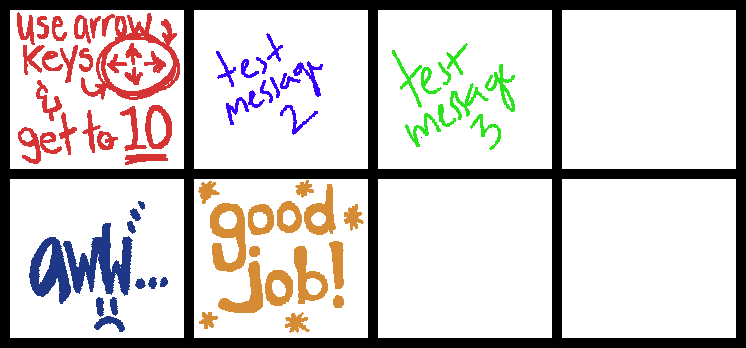 use arrow
keys
&
get to 10
test
message
2
test
message
3
aww...
good
job!